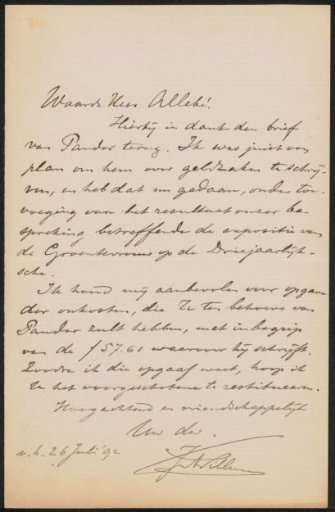 Waarde Heer Allebé!
Hierbij in dank den brief
van Pander terug. Ik was juist van
plan om hem over geldzaken te schrij-
ven, en heb dat nu gedaan, onder toe-
voeging van het resultaat onzer be-
spreking betreffende de expositie van
de Groentevrouw op de Driejaarlijk-
sche.
Ik houd mij aanbevolen voor opgave
der onkosten, die U ten behoeve van
Pander zult hebben, met inbegrip
van de f 57.61 waarover hij schrijft.
Zoodra ik die opgaaf weet, hoop ik
U het voorgeschotene te restitueeren.
Hoogachtend en vriendschappelijk
Uw dw.
26 Juli '92